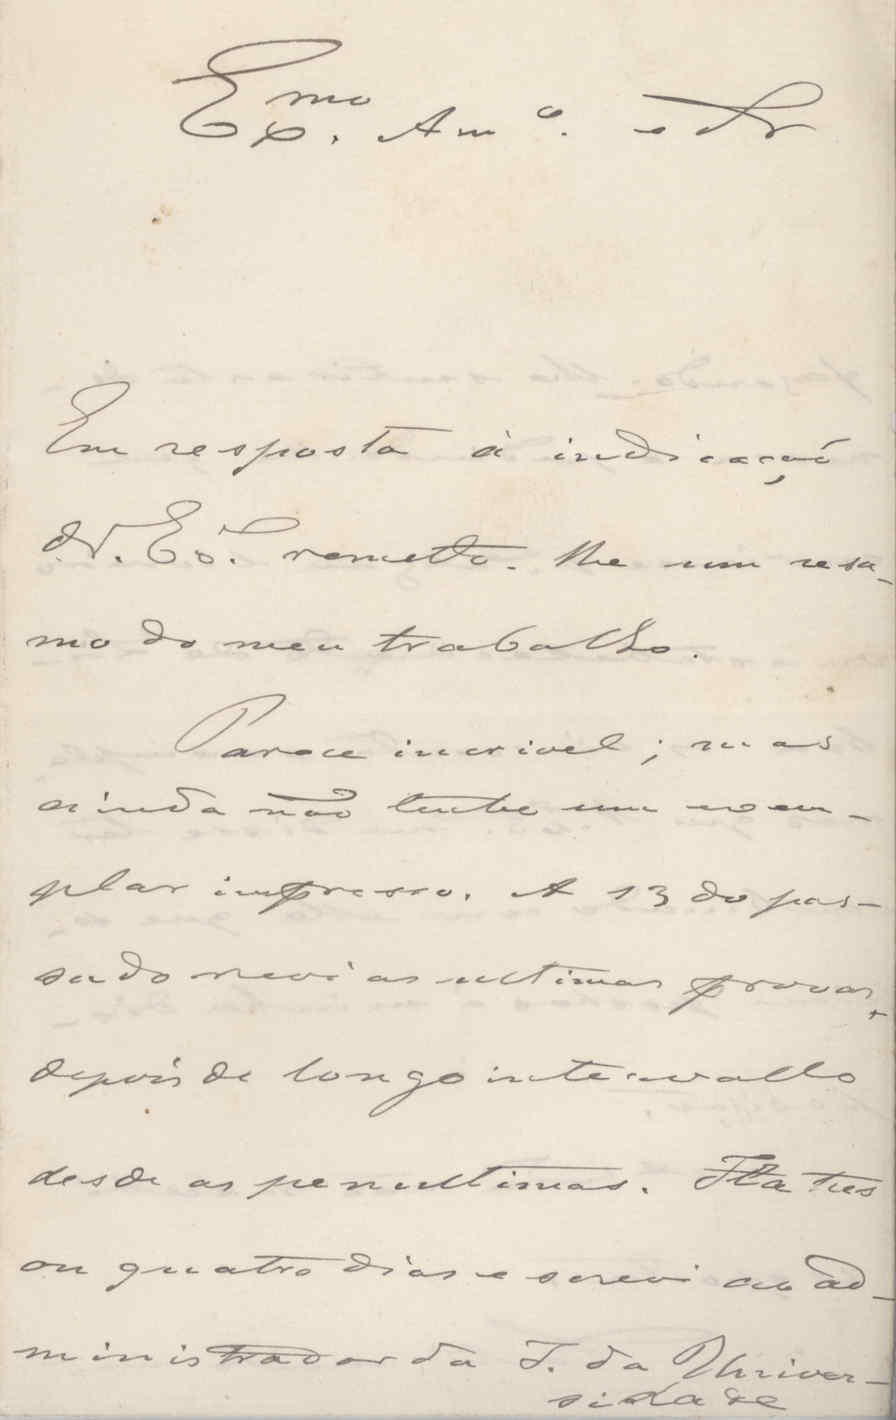 Ex.mo Am.o e Sr
Em resposta á indicação
de V. Ex.ª remetto-lhe um resu-
mo do meu trabalho.
Parece incrivel; mas
ainda não tenho um exem-
plar impresso. A 13 do pas-
sado revi as ultimas provas,
depois de longo intervallo
desde as penultimas. Ha tres
ou quatro dias escrevi ao ad-
ministrador da I. da Univer-
sidade